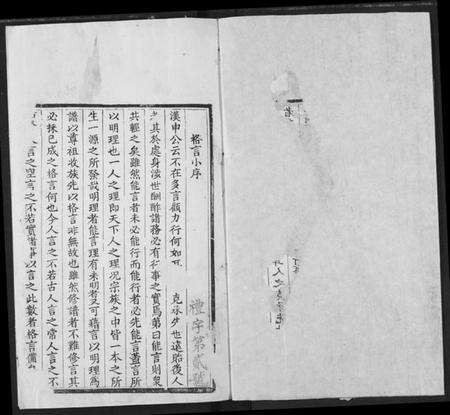 格言小序
漢申公云不在多言顧力行何如
其於處身涉世酬酢諸務必有行事之實焉第曰能言則眾
共輕之矣雖然能言者未必能行而能行者必先能言蓋言所
以明理也一人之理即天下人之理况宗族之中皆一本之所
生一源之所發說明理者能言理有未明者又可藉言以明理焉
譜以尊祖收族先以格言非無故也雖然修譜者不難修言其
必採已成之格言何也今人言之不若古人言之常人言之不
言之空言之不若實譜事以言之此數者格言備
克承 也遠貽後人
禮字第貳號